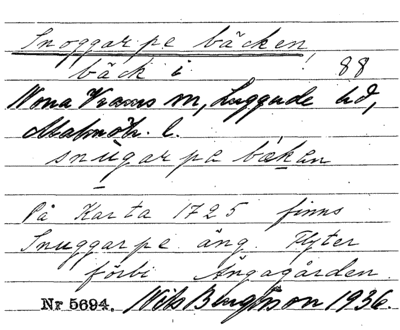 Snoggarpe bäcken,
bäck i 88
Norra Vrams sn, Luggude hd,
Malmöh. l.
snu̲garpa bækan
På Karta 1725 finns
Snuggarpe äng. Flyter
förbi Ängagården.
Nr 5694. Nils Bengtsson 1936.